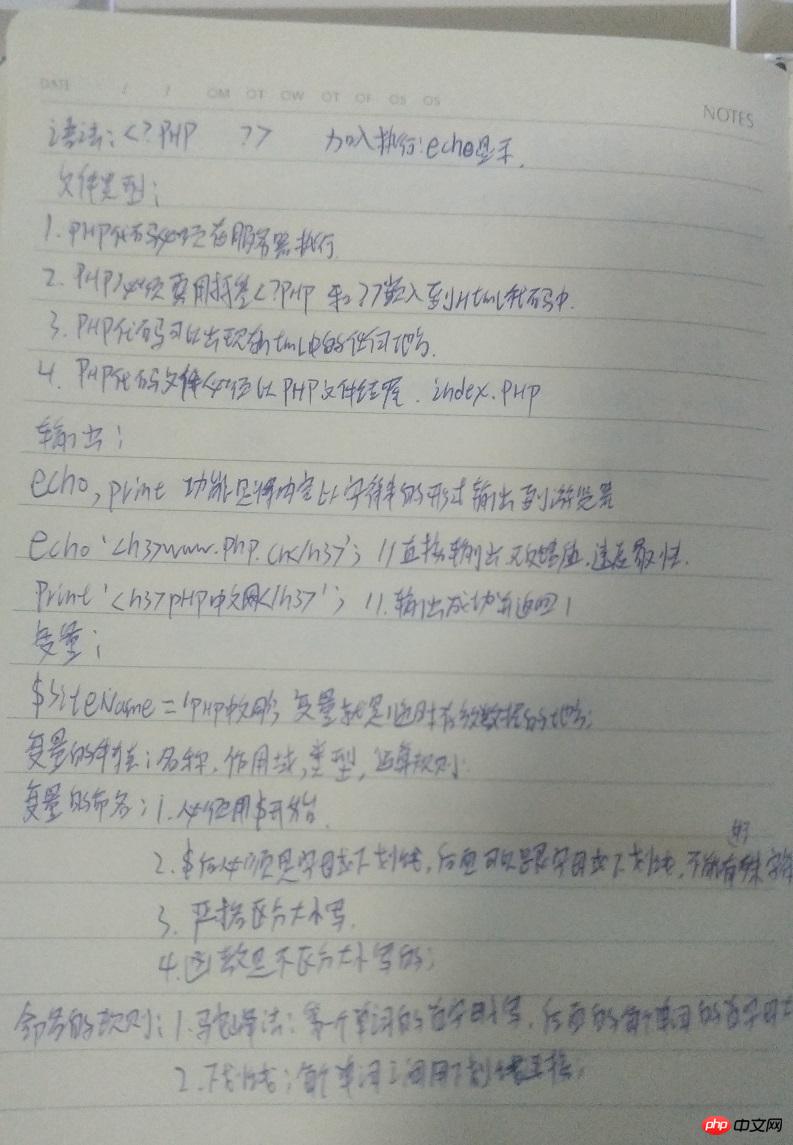 DATE / / OM OT OW OT OF OS OS
NOTES
语法:<?PHP ?> 加入执行:echo显示.
文件类型:
1. PHP代码必须在服务器执行
2. PHP必须要用标签<?PHP 和?>嵌入到Html代码中.
3. PHP代码可以出现在html中的任何地方.
4. PHP代码文件必须以PHP文件结尾. index.PHP
输出:
echo, print 功能是将内容以字符串的形式输出到浏览器
echo '<h3>www.php.cn</h3>'; //直接输出无返回值.速度最快.
Print '<h3>PHP中文网</h3>'; //.输出成功并返回1
变量:
$SiteName = 'PHP中文网'; 变量就是临时存放数据的地方;
变量的特征:名称,作用域,类型,运算规则.
变量的命名:1.必须用$开始.
2.$后必须是字母或下划线,后面可以是字母或下划线,不能有特殊字符
3. 严格区分大小写.
4.函数是不区分大小写的;
命名的规则:1.驼峰法:第一个单词的首字母小写,后面的每个单词的首字母大
2.下划线:每个单词之间用下划线连接;
php 中文网